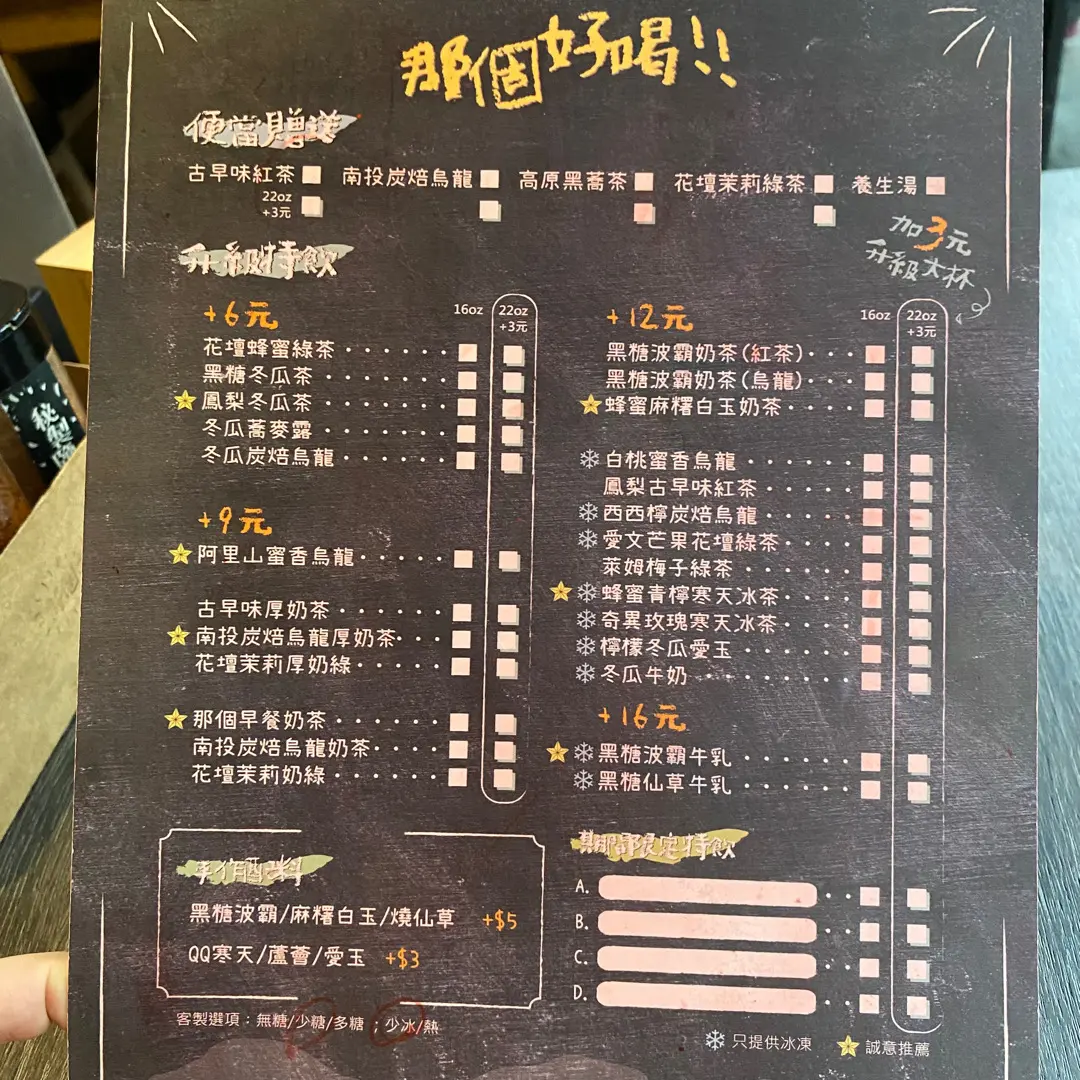 那個好喝!!
便當贈送
古早味紅茶 南投炭焙烏龍 高原黑蕎茶 花壇茉莉綠茶 養生湯
22oz
+3元
加3元
升級大杯
升級特飲
+6元 16oz 22oz
+3元
花壇蜂蜜綠茶
黑糖冬瓜茶
鳳梨冬瓜茶
冬瓜蕎麥露
冬瓜炭焙烏龍
+9元
阿里山蜜香烏龍
古早味厚奶茶
南投炭焙烏龍厚奶茶
花壇茉莉厚奶綠
那個早餐奶茶
南投炭焙烏龍奶茶
花壇茉莉奶綠
+12元 16oz 22oz
+3元
黑糖波霸奶茶(紅茶)
黑糖波霸奶茶(烏龍)
蜂蜜麻糬白玉奶茶
白桃蜜香烏龍
鳳梨古早味紅茶
西西檸炭焙烏龍
愛文芒果花壇綠茶
萊姆梅子綠茶
蜂蜜青檸寒天冰茶
奇異玫瑰寒天冰茶
檸檬冬瓜愛玉
冬瓜牛奶
+16元
黑糖波霸牛乳
黑糖仙草牛乳
手作配料
黑糖波霸/麻糬白玉/燒仙草 +$5
QQ寒天/蘆薈/愛玉 +$3
客製選項：無糖/少糖/多糖；少冰/熱
期間限定特飲
A.
B.
C.
D.
只提供冰凍 誠意推薦
秘製